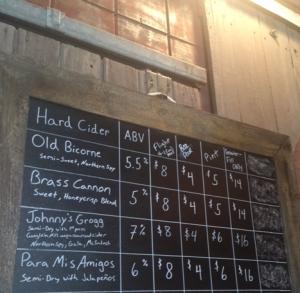 Hard Cider ABV Flight Pint Growler Fill ONLY
Old Bicorne 5.5% $8 $4 $5 $14
Semi-Sweet, Northern Spy
Brass Cannon 5% $8 $4 $5 $14
Sweet, Honeycrisp Blend
Johnny's Grogg 7% $8 $4 $6 $16
Semi-Dry with
Northern Spy, Gala, McIntosh
Para Mis Amigos 6% $8 $4 $6 $16
Semi-Dry with Jalapeños